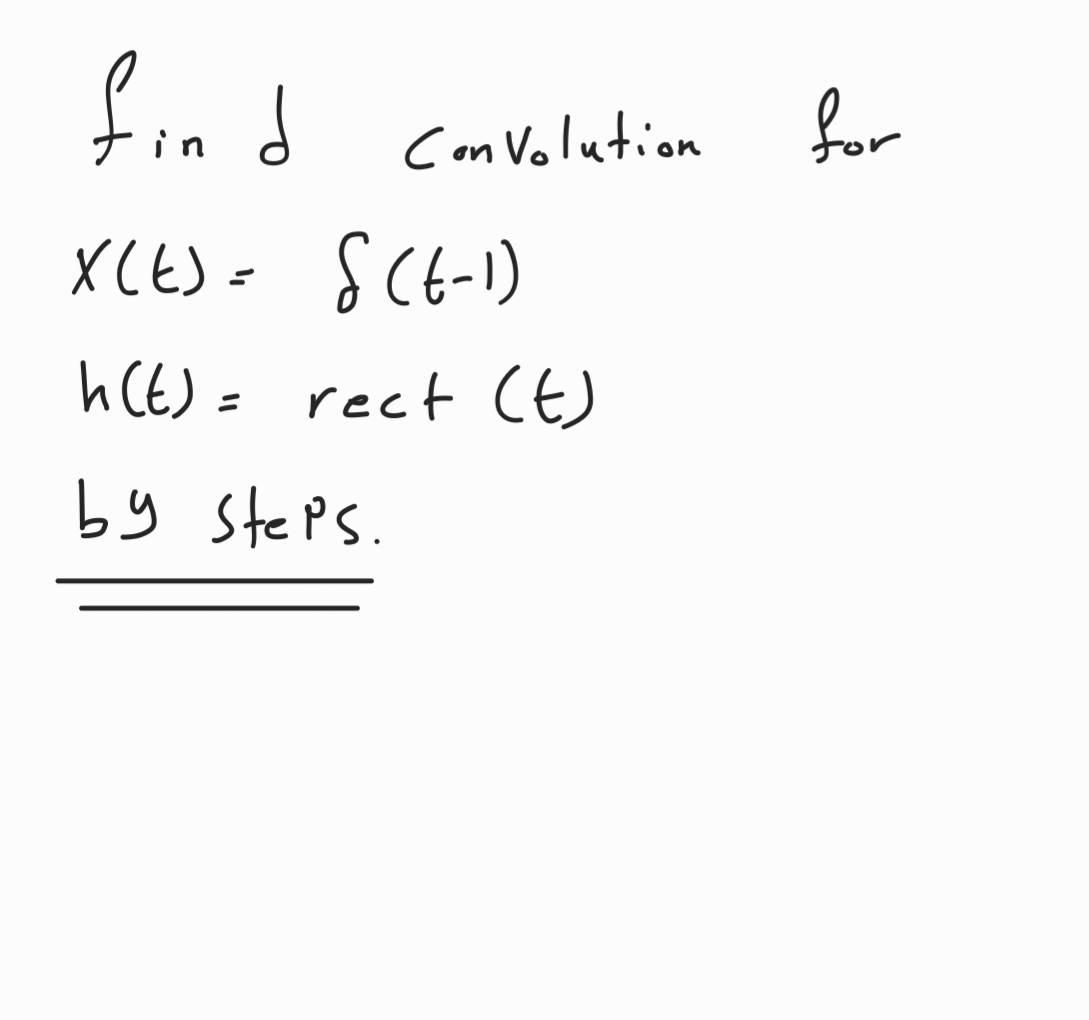 find convolution for
x(t) = δ(t-1)
h(t) = rect (t)
by steps.